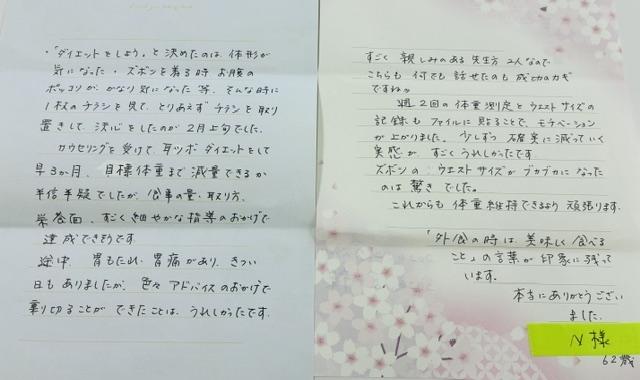 ・「ダイエットをしよう」と決めたのは、体形が
気になった・ズボンを着る時お腹の
ポッコリが、かなり気になった等、そんな時に
1枚のチラシを見て、とりあえずチラシを取り
置きして、決心をしたのが2月上旬でした。
カウンセリングを受けて、耳ツボダイエットをして
早3か月、目標体重まで減量できるか
半信半疑でしたが、食事の量・取り方、
栄養面、すごく細やかな指導のおかげで
達成できそうです
途中 胃もたれ・胃痛があり、きつい
日もありましたが、色々アドバイスのおかげで
乗り切ることができたことは、うれしかったです。
すごく親しみのある先生方2人なので
こちらも何でも話せたのも成功のカギ
ですね。
週2回の体重測定とウエストサイズの
記録もファイルに貼ることで、モチベーション
が上がりました。少しずつ確実に減っていく
実感がすごくうれしかったです。
ズボンのウエストサイズがブカブカになった
のは驚きでした。
これからも体重維持できるよう頑張ります。
「外食の時は、美味しく食べる
こと」の言葉が印象に残って
います。
本当にありがとうござい
ました。
N様
62歳